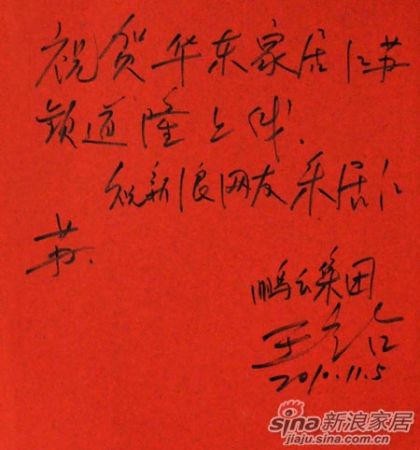 祝贺华东家居江苏
频道隆上线.
祝新浪网友乐居江
苏.
鹏云集团
王
2010.11.5
sina新浪家居
jiaju.sina.com.cn